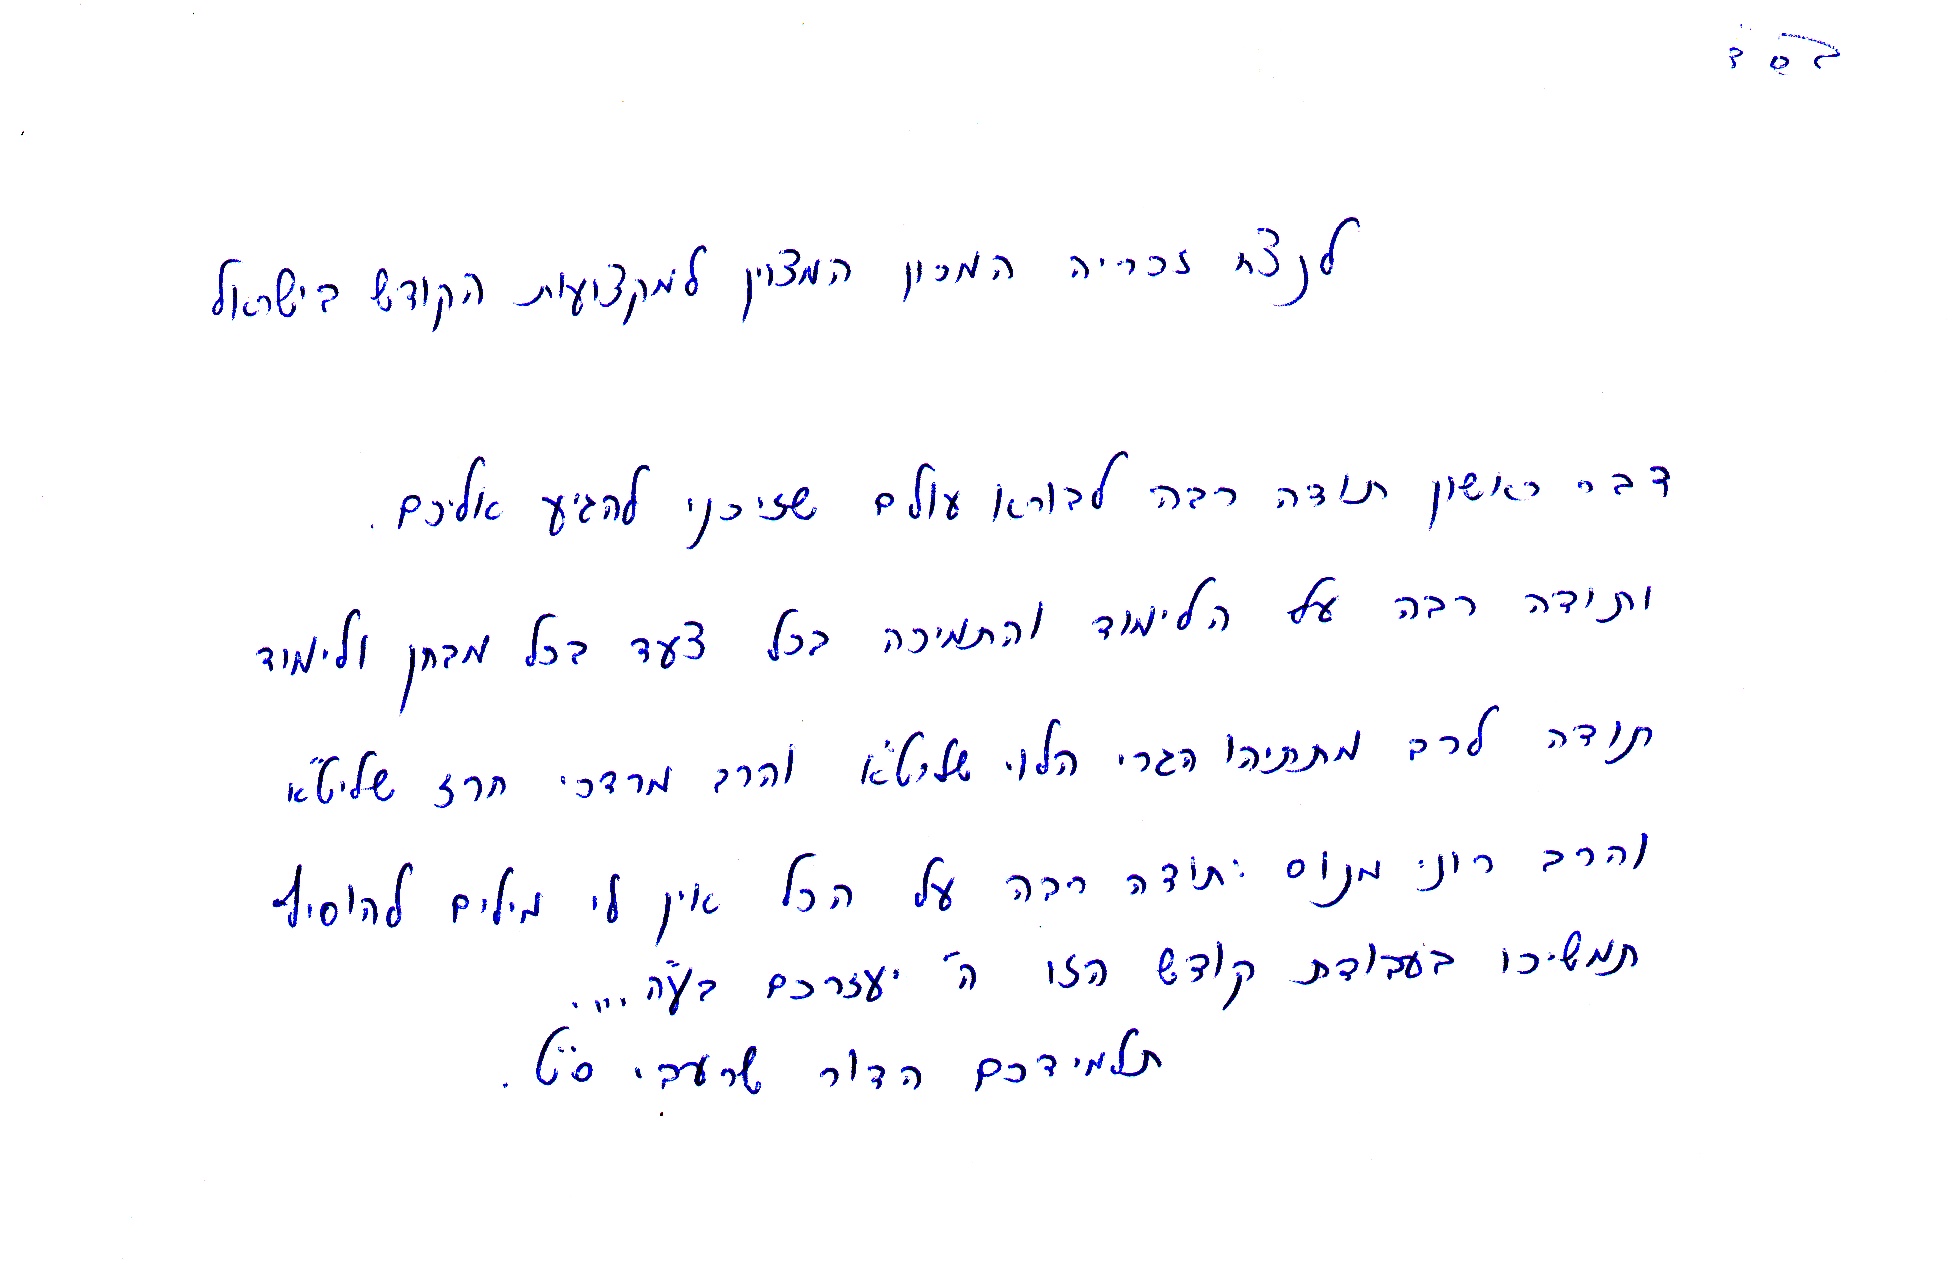 בס"ד
לנצח זכריה המכון המצוין למקצועות הקודש בישראל
דבר ראשון תודה רבה לבורא עולם שזיכני להגיע אליכם.
ותודה רבה על הלימוד והתמיכה בכל צעד בכל מבחן ולימוד
תודה לרב מתתיהו הגרי הלוי שליט"א והרב מרדכי חרז שליט"א
והרב רוני מנוס תודה רבה על הכל אין לי מילים להוסיף
תמשיכו בעבודת קודש הזו ה' יעזרכם בע"ה....
תלמידכם הדור שרעבי ס"ט.